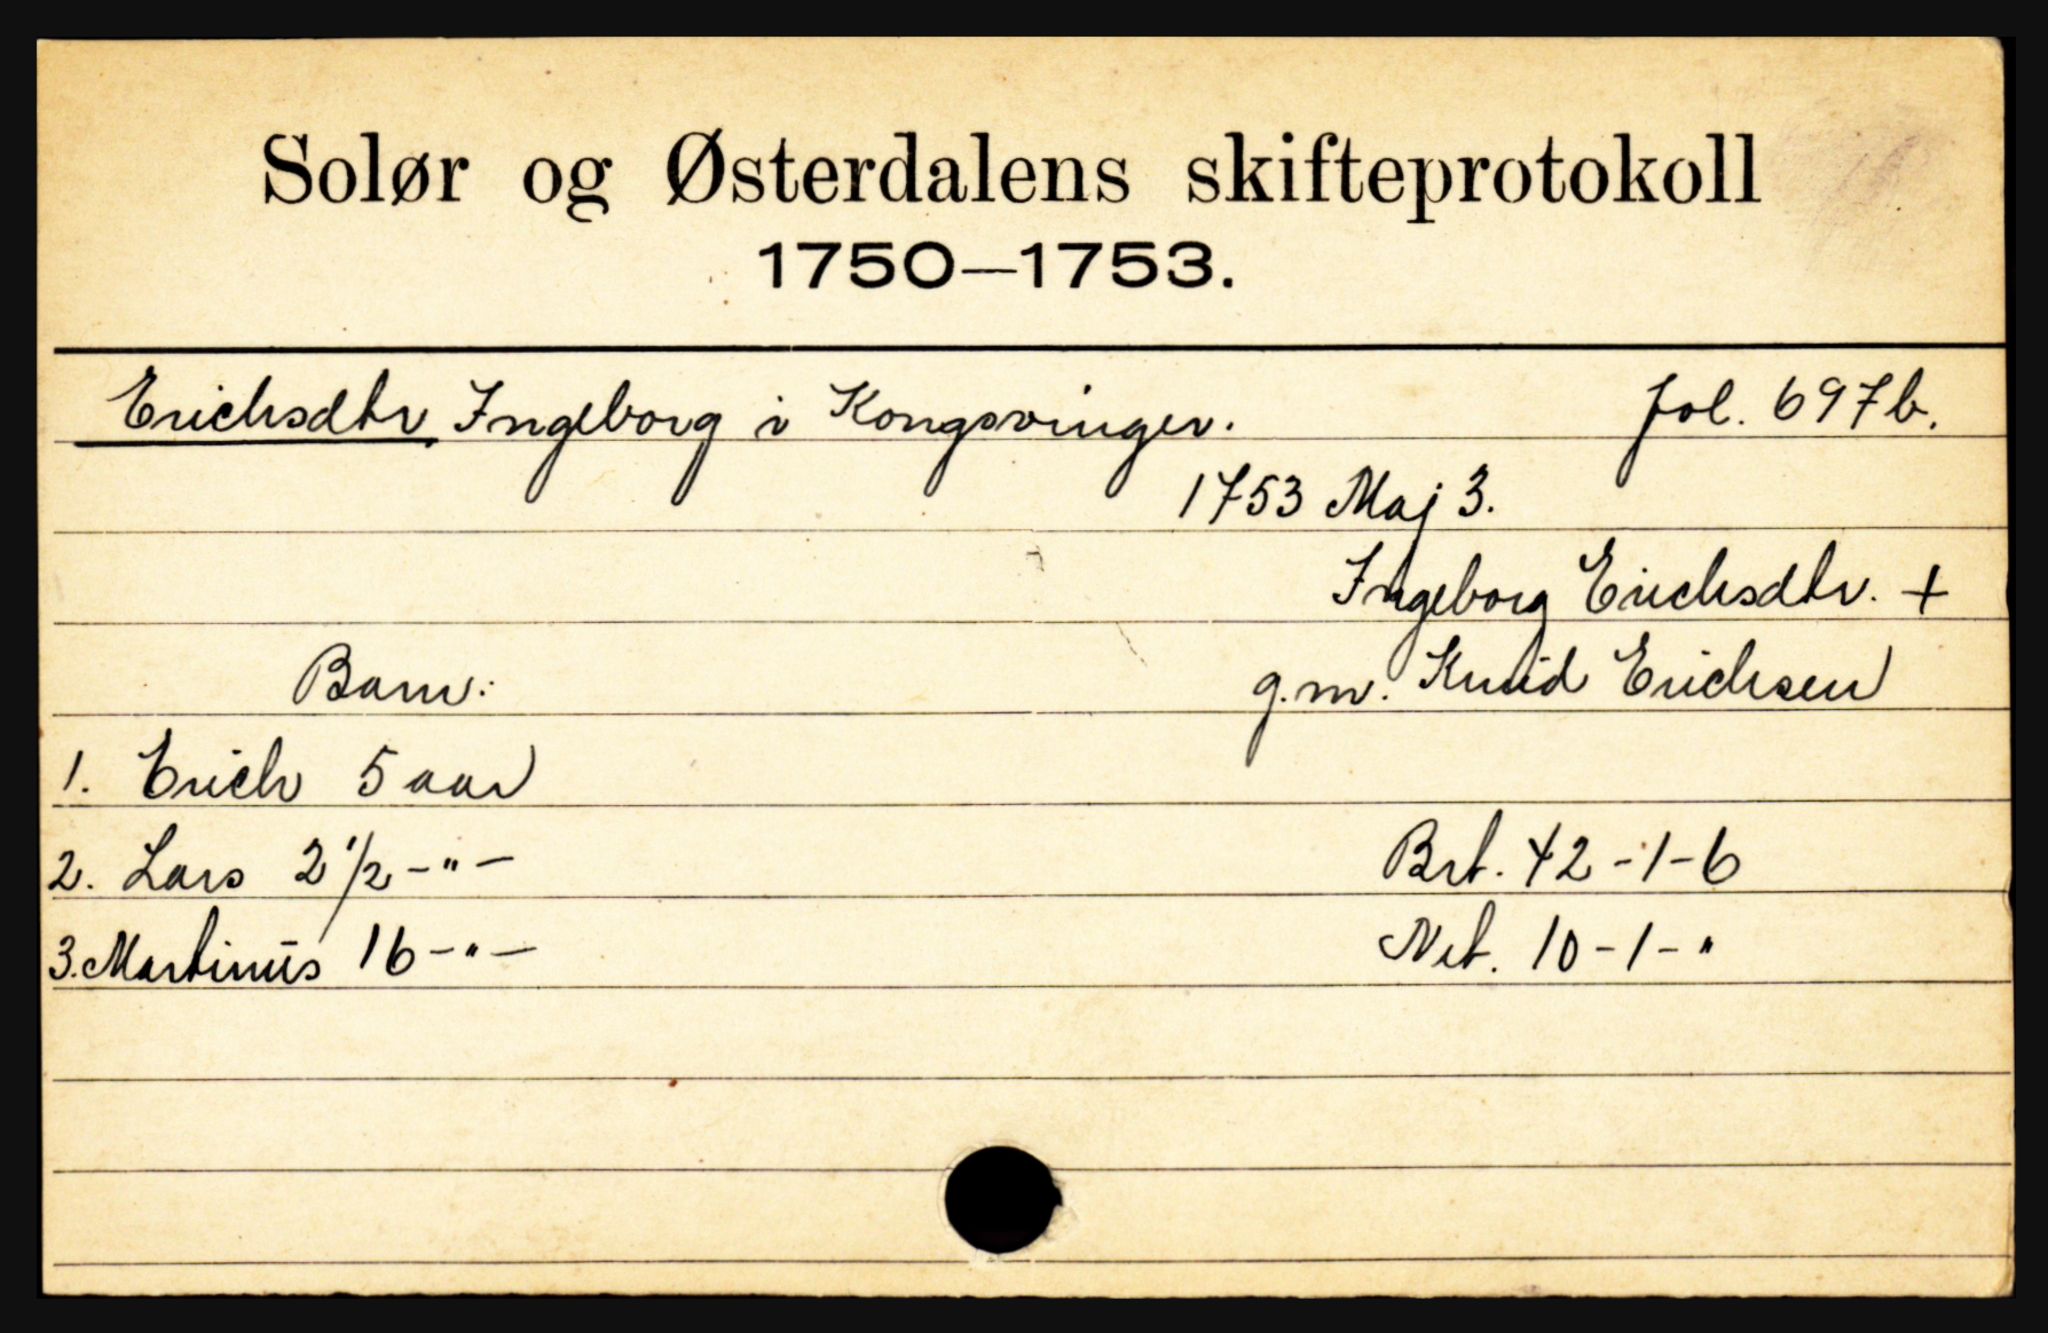 Solør og Østerdalens skifteprotokoll
1750—1753.
Erichsdtr Ingeborg i Kongsvinger. fol. 697b.
1753 Maj 3.
Ingeborg Erichsdtr. +
Barn: g.m. Knud Erichsen
1. Erich 5 aar
2. Lars 2 1/2 -"- Brt. 42-1-6
3. Martinus 16 -"- Net. 10-1-"